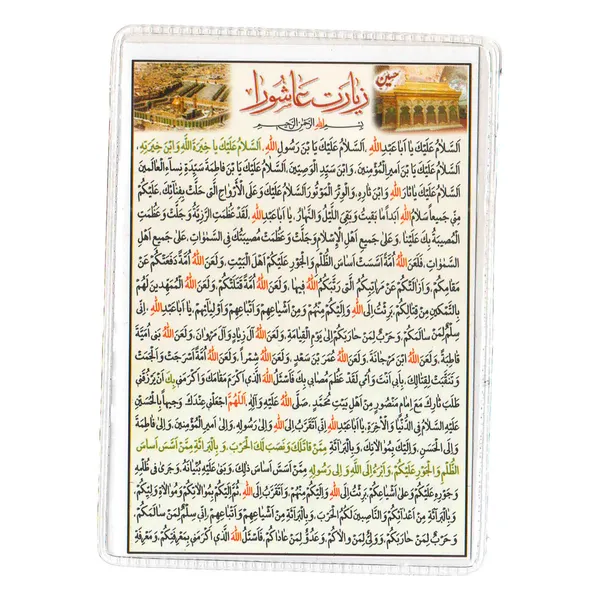 زیارت عاشورا
حسین
بِسْمِ اللهِ الرَّحْمٰنِ الرَّحيمِ
اَلسَّلامُ عَلَيْكَ يا اَبا عَبْدِ اللهِ، اَلسَّلامُ عَلَيْكَ يَا بْنَ رَسُولِ اللهِ، اَلسَّلامُ عَلَيْكَ يا خِيَرَةَ اللَّهِ وَابْنَ خِيَرَتِهِ،
اَلسَّلامُ عَلَيْكَ يَا بْنَ اَميرِ الْمُؤْمِنينَ، وَابْنَ سَيِّدِ الْوَصِيّينَ، اَلسَّلامُ عَلَيْكَ يَا بْنَ فاطِمَةَ سَيِّدَةِ نِساءِ الْعالَمينَ
اَلسَّلامُ عَلَيْكَ يا ثارَ اللهِ وَابْنَ ثارِهِ، وَالْوِتْرَ الْمَوْتُورَ اَلسَّلامُ عَلَيْكَ وَعَلَى الْأَرْواحِ الَّتى حَلَّتْ بِفِنائِكَ، عَلَيْكُمْ
مِنّى جَميعاً سَلامُ اللهِ اَبَداً ما بَقيتُ وَبَقِىَ اللَّيْلُ وَالنَّهارُ، يا اَبا عَبْدِ اللهِ، لَقَدْ عَظُمَتِ الرَّزِيَّةُ وَجَلَّتْ وَعَظُمَتِ
الْمُصيبَةُ بِكَ عَلَيْنا، وَعَلى جَميعِ اَهْلِ الْإِسْلامِ وَجَلَّتْ وَعَظُمَتْ مُصيبَتُكَ فِى السَّمٰواتِ، عَلى جَميعِ اَهْلِ
السَّمٰواتِ، فَلَعَنَ اللهُ اُمَّةً اَسَّسَتْ اَساسَ الظُّلْمِ وَالْجَوْرِ عَلَيْكُمْ اَهْلَ الْبَيْتِ، وَلَعَنَ اللهُ اُمَّةً دَفَعَتْكُمْ عَنْ
مَقامِكُمْ، وَاَزالَتْكُمْ عَنْ مَراتِبِكُمُ الَّتى رَتَّبَكُمُ اللهُ فيها، وَلَعَنَ اللهُ اُمَّةً قَتَلَتْكُمْ، وَلَعَنَ اللهُ الْمُمَهِّدينَ لَهُمْ
بِالتَّمْكينِ مِنْ قِتالِكُمْ، بَرِئْتُ اِلَى اللهِ وَاِلَيْكُمْ مِنْهُمْ وَمِنْ اَشْياعِهِمْ وَاَتْباعِهِمْ وَاَوْلِيائِهِمْ، يا اَبا عَبْدِ اللهِ، اِنّى
سِلْمٌ لِمَنْ سالَمَكُمْ، وَحَرْبٌ لِمَنْ حارَبَكُمْ اِلى يَوْمِ الْقِيامَةِ، وَلَعَنَ اللهُ آلَ زِيادٍ وَآلَ مَرْوانَ، وَلَعَنَ اللهُ بَنى اُمَيَّةَ
قاطِبَةً، وَلَعَنَ اللهُ ابْنَ مَرْجانَةَ، وَلَعَنَ اللهُ عُمَرَ بْنَ سَعْدٍ، وَلَعَنَ اللهُ شِمْراً، وَلَعَنَ اللهُ اُمَّةً اَسْرَجَتْ وَاَلْجَمَتْ
وَتَنَقَّبَتْ لِقِتالِكَ، بِاَبى اَنْتَ وَاُمّى لَقَدْ عَظُمَ مُصابى بِكَ فَاَسْئَلُ اللهَ الَّذى اَكْرَمَ مَقامَكَ وَاَكْرَمَنى بِكَ اَنْ يَرْزُقَنى
طَلَبَ ثارِكَ مَعَ اِمامٍ مَنْصُورٍ مِنْ اَهْلِ بَيْتِ مُحَمَّدٍ، صَلَّى اللهُ عَلَيْهِ وَآلِهِ، اَللّٰهُمَّ اجْعَلْنى عِنْدَكَ وَجيهاً بِالْحُسَيْنِ
عَلَيْهِ السَّلامُ فِى الدُّنْيا وَالْآخِرَةِ، يا اَبا عَبْدِ اللهِ اِنّى اَتَقَرَّبُ اِلَى اللهِ، وَاِلى رَسُولِهِ، وَاِلى اَميرِ الْمُؤْمِنينَ، وَاِلى فاطِمَةَ
وَاِلَى الْحَسَنِ، وَاِلَيْكَ بِمُوالاتِكَ، وَبِالْبَرائَةِ مِمَّنْ قاتَلَكَ وَنَصَبَ لَكَ الْحَرْبَ، وَبِالْبَرائَةِ مِمَّنْ اَسَّسَ اَساسَ
الظُّلْمِ وَالْجَوْرِ عَلَيْكُمْ، وَاَبْرَءُ اِلَى اللهِ وَاِلى رَسُولِهِ مِمَّنْ اَسَّسَ اَساسَ ذلِكَ، وَبَنى عَلَيْهِ بُنْيانَهُ، وَجَرى فى ظُلْمِهِ
وَجَوْرِهِ عَلَيْكُمْ وَعَلى اَشْياعِكُمْ، بَرِئْتُ اِلَى اللهِ وَاِلَيْكُمْ مِنْهُمْ، وَاَتَقَرَّبُ اِلَى اللهِ، ثُمَّ اِلَيْكُمْ بِمُوالاتِكُمْ وَمُوالاةِ وَلِيِّكُمْ،
وَبِالْبَرائَةِ مِنْ اَعْدائِكُمْ وَالنّاصِبينَ لَكُمُ الْحَرْبَ، وَبِالْبَرائَةِ مِنْ اَشْياعِهِمْ وَاَتْباعِهِمْ، اِنّى سِلْمٌ لِمَنْ سالَمَكُمْ،
وَحَرْبٌ لِمَنْ حارَبَكُمْ، وَوَلِىٌّ لِمَنْ والاكُمْ، وَعَدُوٌّ لِمَنْ عاداكُمْ، فَاَسْئَلُ اللهَ الَّذى اَكْرَمَنى بِمَعْرِفَتِكُمْ، وَمَعْرِفَةِ